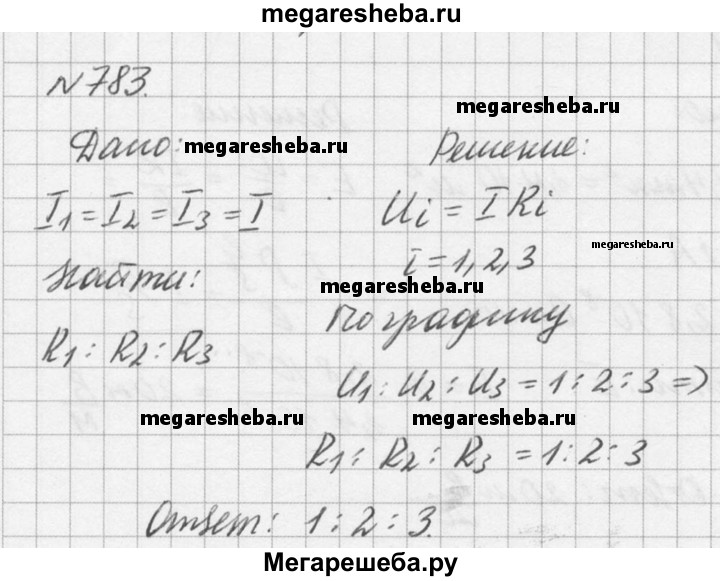 megaresheba.ru
№783.
megaresheba.ru
Дано: megaresheba.ru
Решение:
I₁=I₂=I₃=I
Ui=IRi
megaresheba.ru
i=1,2,3
Найти:
megaresheba.ru
По графику
R₁:R₂:R₃
U₁:U₂:U₃=1:2:3=>
megaresheba.ru megaresheba.ru
R₁:R₂:R₃=1:2:3
Ответ: 1:2:3.
Мегарешеба.ру